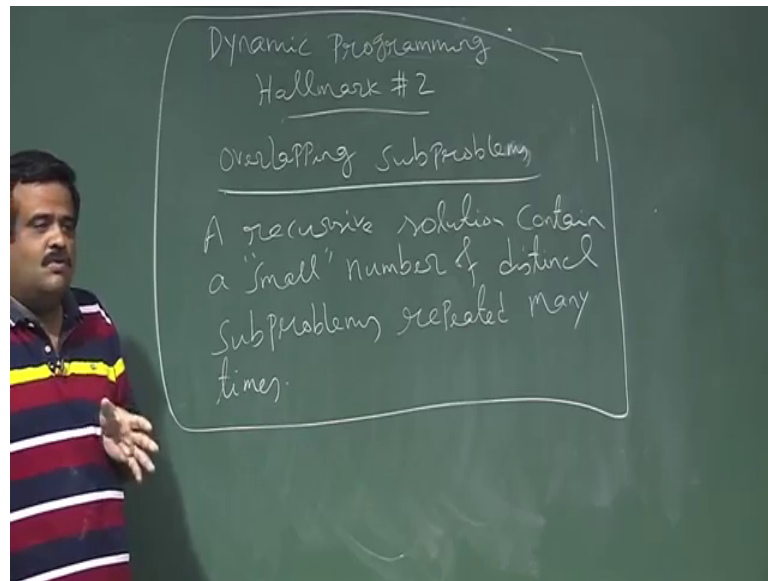 Dynamic Programming
Hallmark #2
Overlapping Subproblems
A recursive solution contain
a "small" number of distinct
subproblems repeated many
times.